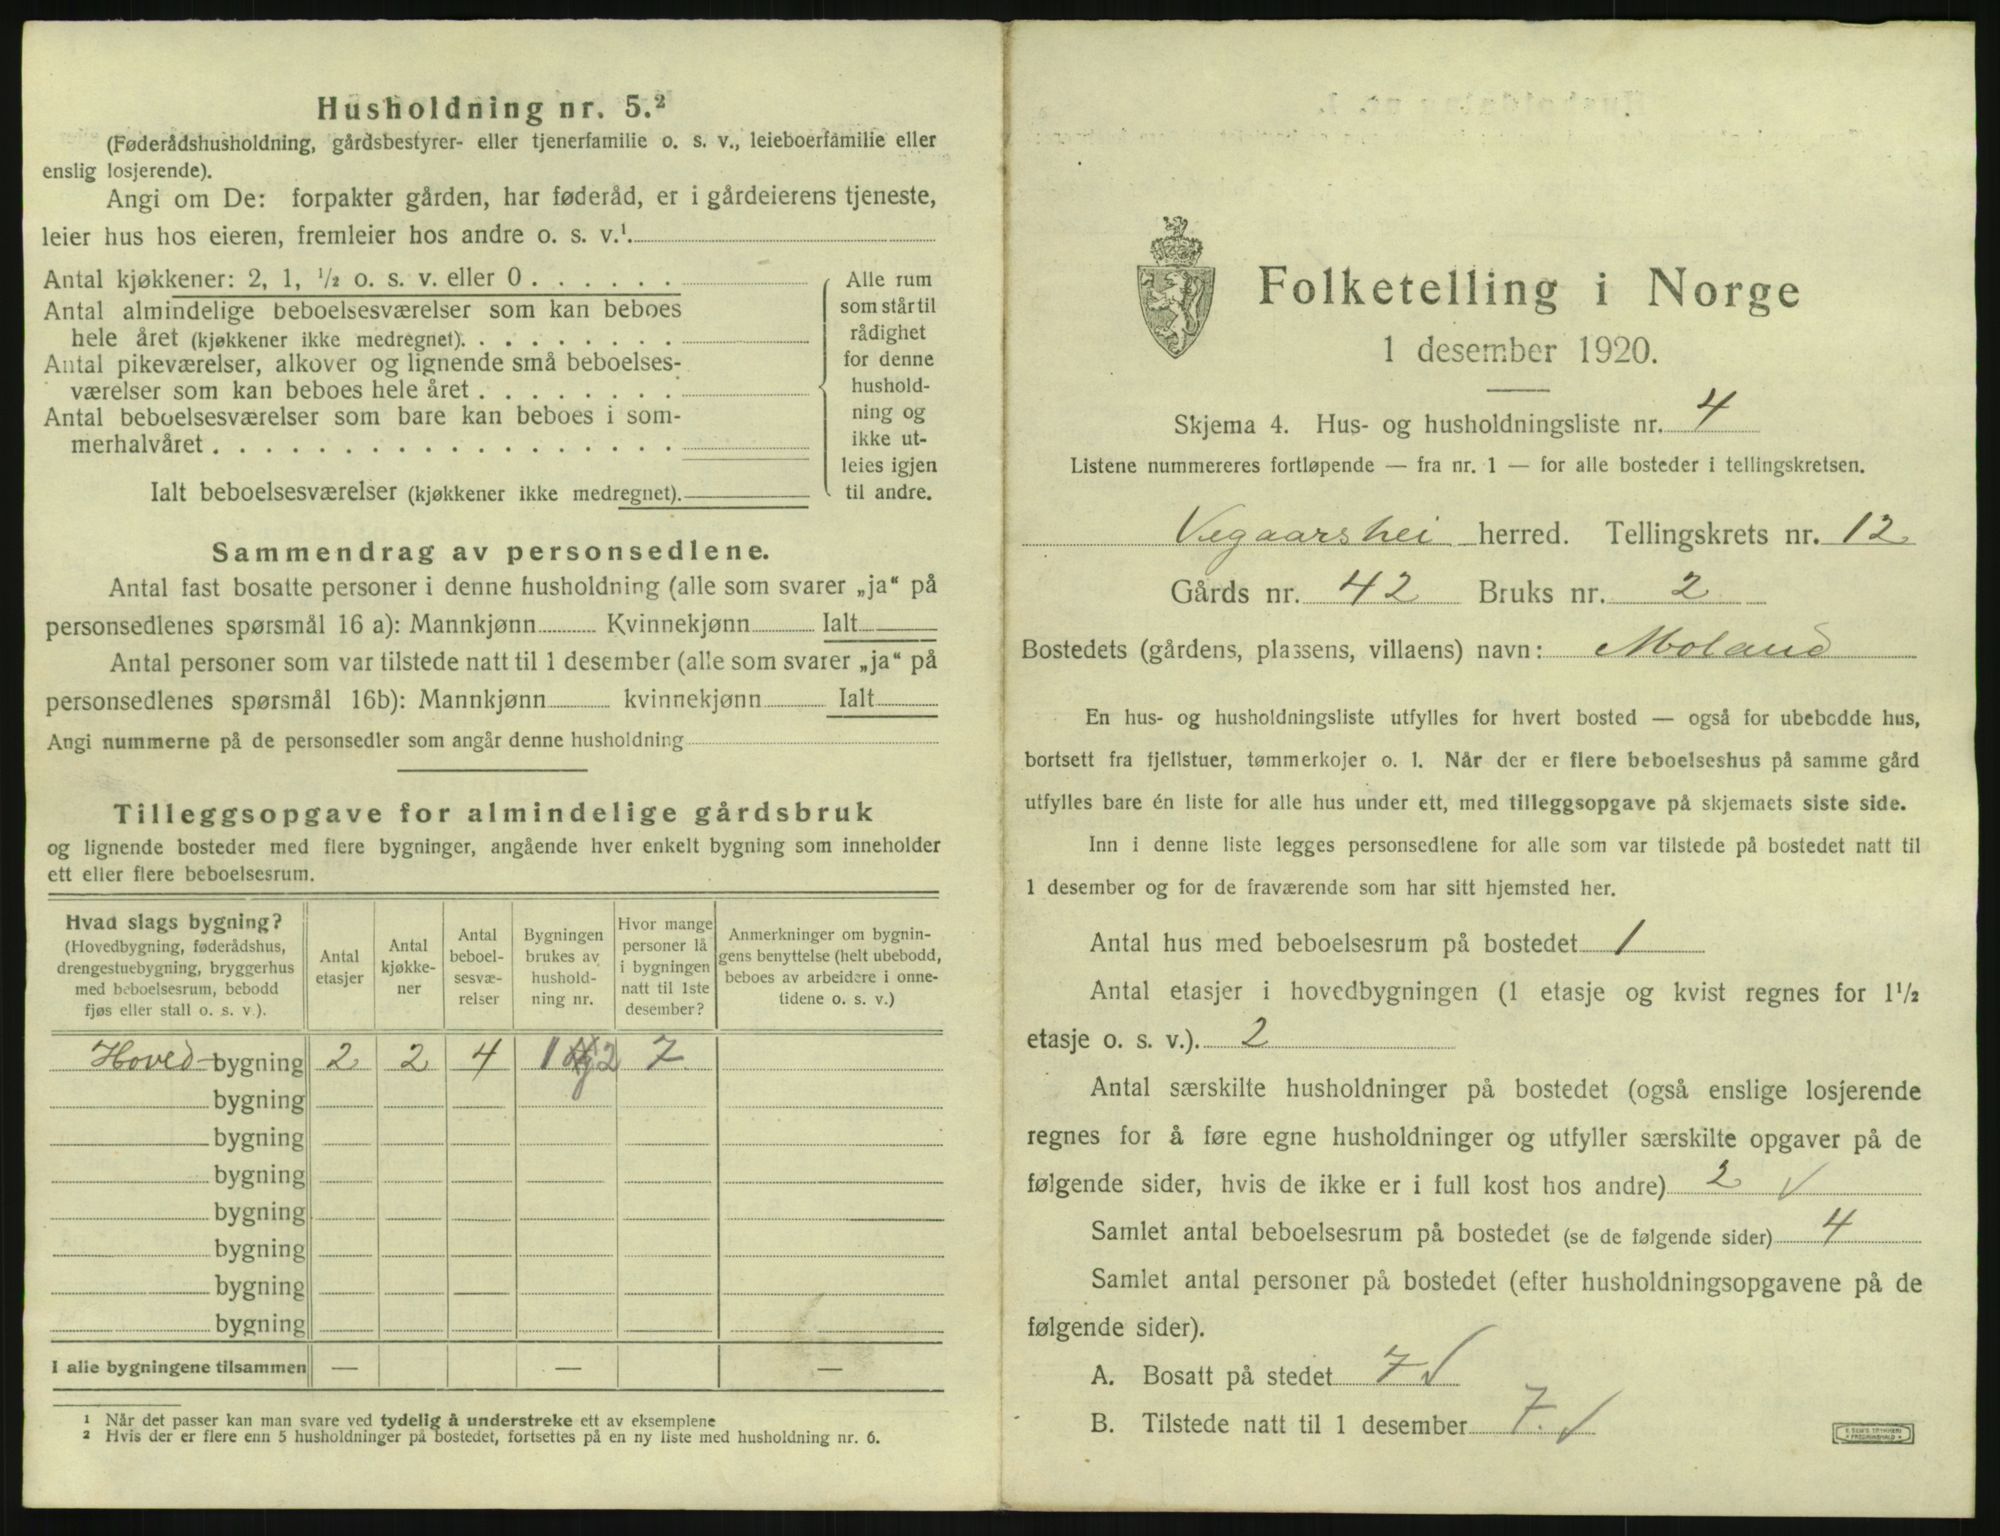 Husholdning nr. 5.²
(Føderådshusholdning, gårdsbestyrer- eller tjenerfamilie o. s. v., leieboerfamilie eller
enslig losjerende).
Angi om De: forpakter gården, har føderåd, er i gårdeierens tjeneste,
leier hus hos eieren, fremleier hos andre o. s. v.¹.
Antal kjøkkener: 2, 1, ½ o. s. v. eller 0 . . . . . .
Antal almindelige beboelsesværelser som kan beboes
hele året (kjøkkener ikke medregnet). . . . . . . . .
Antal pikeværelser, alkover og lignende små beboelses-
værelser som kan beboes hele året . . . . . . . .
Antal beboelsesværelser som bare kan beboes i som-
merhalvåret . . . . . . . . . . . . . . . . . .
Ialt beboelsesværelser (kjøkkener ikke medregnet).
Alle rum
som står til
rådighet
for denne
hushold-
ning og
ikke ut-
leies igjen
til andre.
Sammendrag av personsedlene.
Antal fast bosatte personer i denne husholdning (alle som svarer „ja“ på
personsedlenes spørsmål 16 a): Mannkjønn Kvinnekjønn Ialt
Antal personer som var tilstede natt til 1 desember (alle som svarer „ja“ på
personsedlenes spørsmål 16b): Mannkjønn kvinnekjønn Ialt
Angi nummerne på de personsedler som angår denne husholdning
Tilleggsopgave for almindelige gårdsbruk
og lignende bosteder med flere bygninger, angående hver enkelt bygning som inneholder
ett eller flere beboelsesrum.
Hvad slags bygning?
(Hovedbygning, føderådshus,
drengestuebygning, bryggerhus
med beboelsesrum, bebodd
fjøs eller stall o. s. v.).
Antal
etasjer
Antal
kjøkke-
ner
Antal
beboel-
sesvæ-
relser
Bygningen
brukes av
hushold-
ning nr.
Hvor mange
personer lå
i bygningen
natt til 1ste
desember?
Anmerkninger om bygnin-
gens benyttelse (helt ubebodd,
beboes av arbeidere i onne-
tidene o. s. v.)
Hoved-bygning 2 2 4 1 og 2 7
bygning
bygning
bygning
bygning
bygning
bygning
bygning
I alle bygningene tilsammen — — —
¹ Når det passer kan man svare ved tydelig å understreke ett av eksemplene
² Hvis der er flere enn 5 husholdninger på bostedet, fortsettes på en ny liste med husholdning nr. 6.
Folketelling i Norge
1 desember 1920.
Skjema 4. Hus- og husholdningsliste nr. 4
Listene nummereres fortløpende — fra nr. 1 — for alle bosteder i tellingskretsen.
Vegaarshei herred. Tellingskrets nr. 12
Gårds nr. 42 Bruks nr. 2
Bostedets (gårdens, plassens, villaens) navn: Moland
En hus- og husholdningsliste utfylles for hvert bosted — også for ubebodde hus,
bortsett fra fjellstuer, tømmerkojer o. l. Når der er flere beboelseshus på samme gård
utfylles bare én liste for alle hus under ett, med tilleggsopgave på skjemaets siste side.
Inn i denne liste legges personsedlene for alle som var tilstede på bostedet natt til
1 desember og for de fraværende som har sitt hjemsted her.
Antal hus med beboelsesrum på bostedet 1
Antal etasjer i hovedbygningen (1 etasje og kvist regnes for 1½
etasje o. s. v.). 2
Antal særskilte husholdninger på bostedet (også enslige losjerende
regnes for å føre egne husholdninger og utfyller særskilte opgaver på de
følgende sider, hvis de ikke er i full kost hos andre) 2 ✓
Samlet antal beboelsesrum på bostedet (se de følgende sider) 4
Samlet antal personer på bostedet (efter husholdningsopgavene på de
følgende sider).
A. Bosatt på stedet 7 ✓
B. Tilstede natt til 1 desember 7. ✓